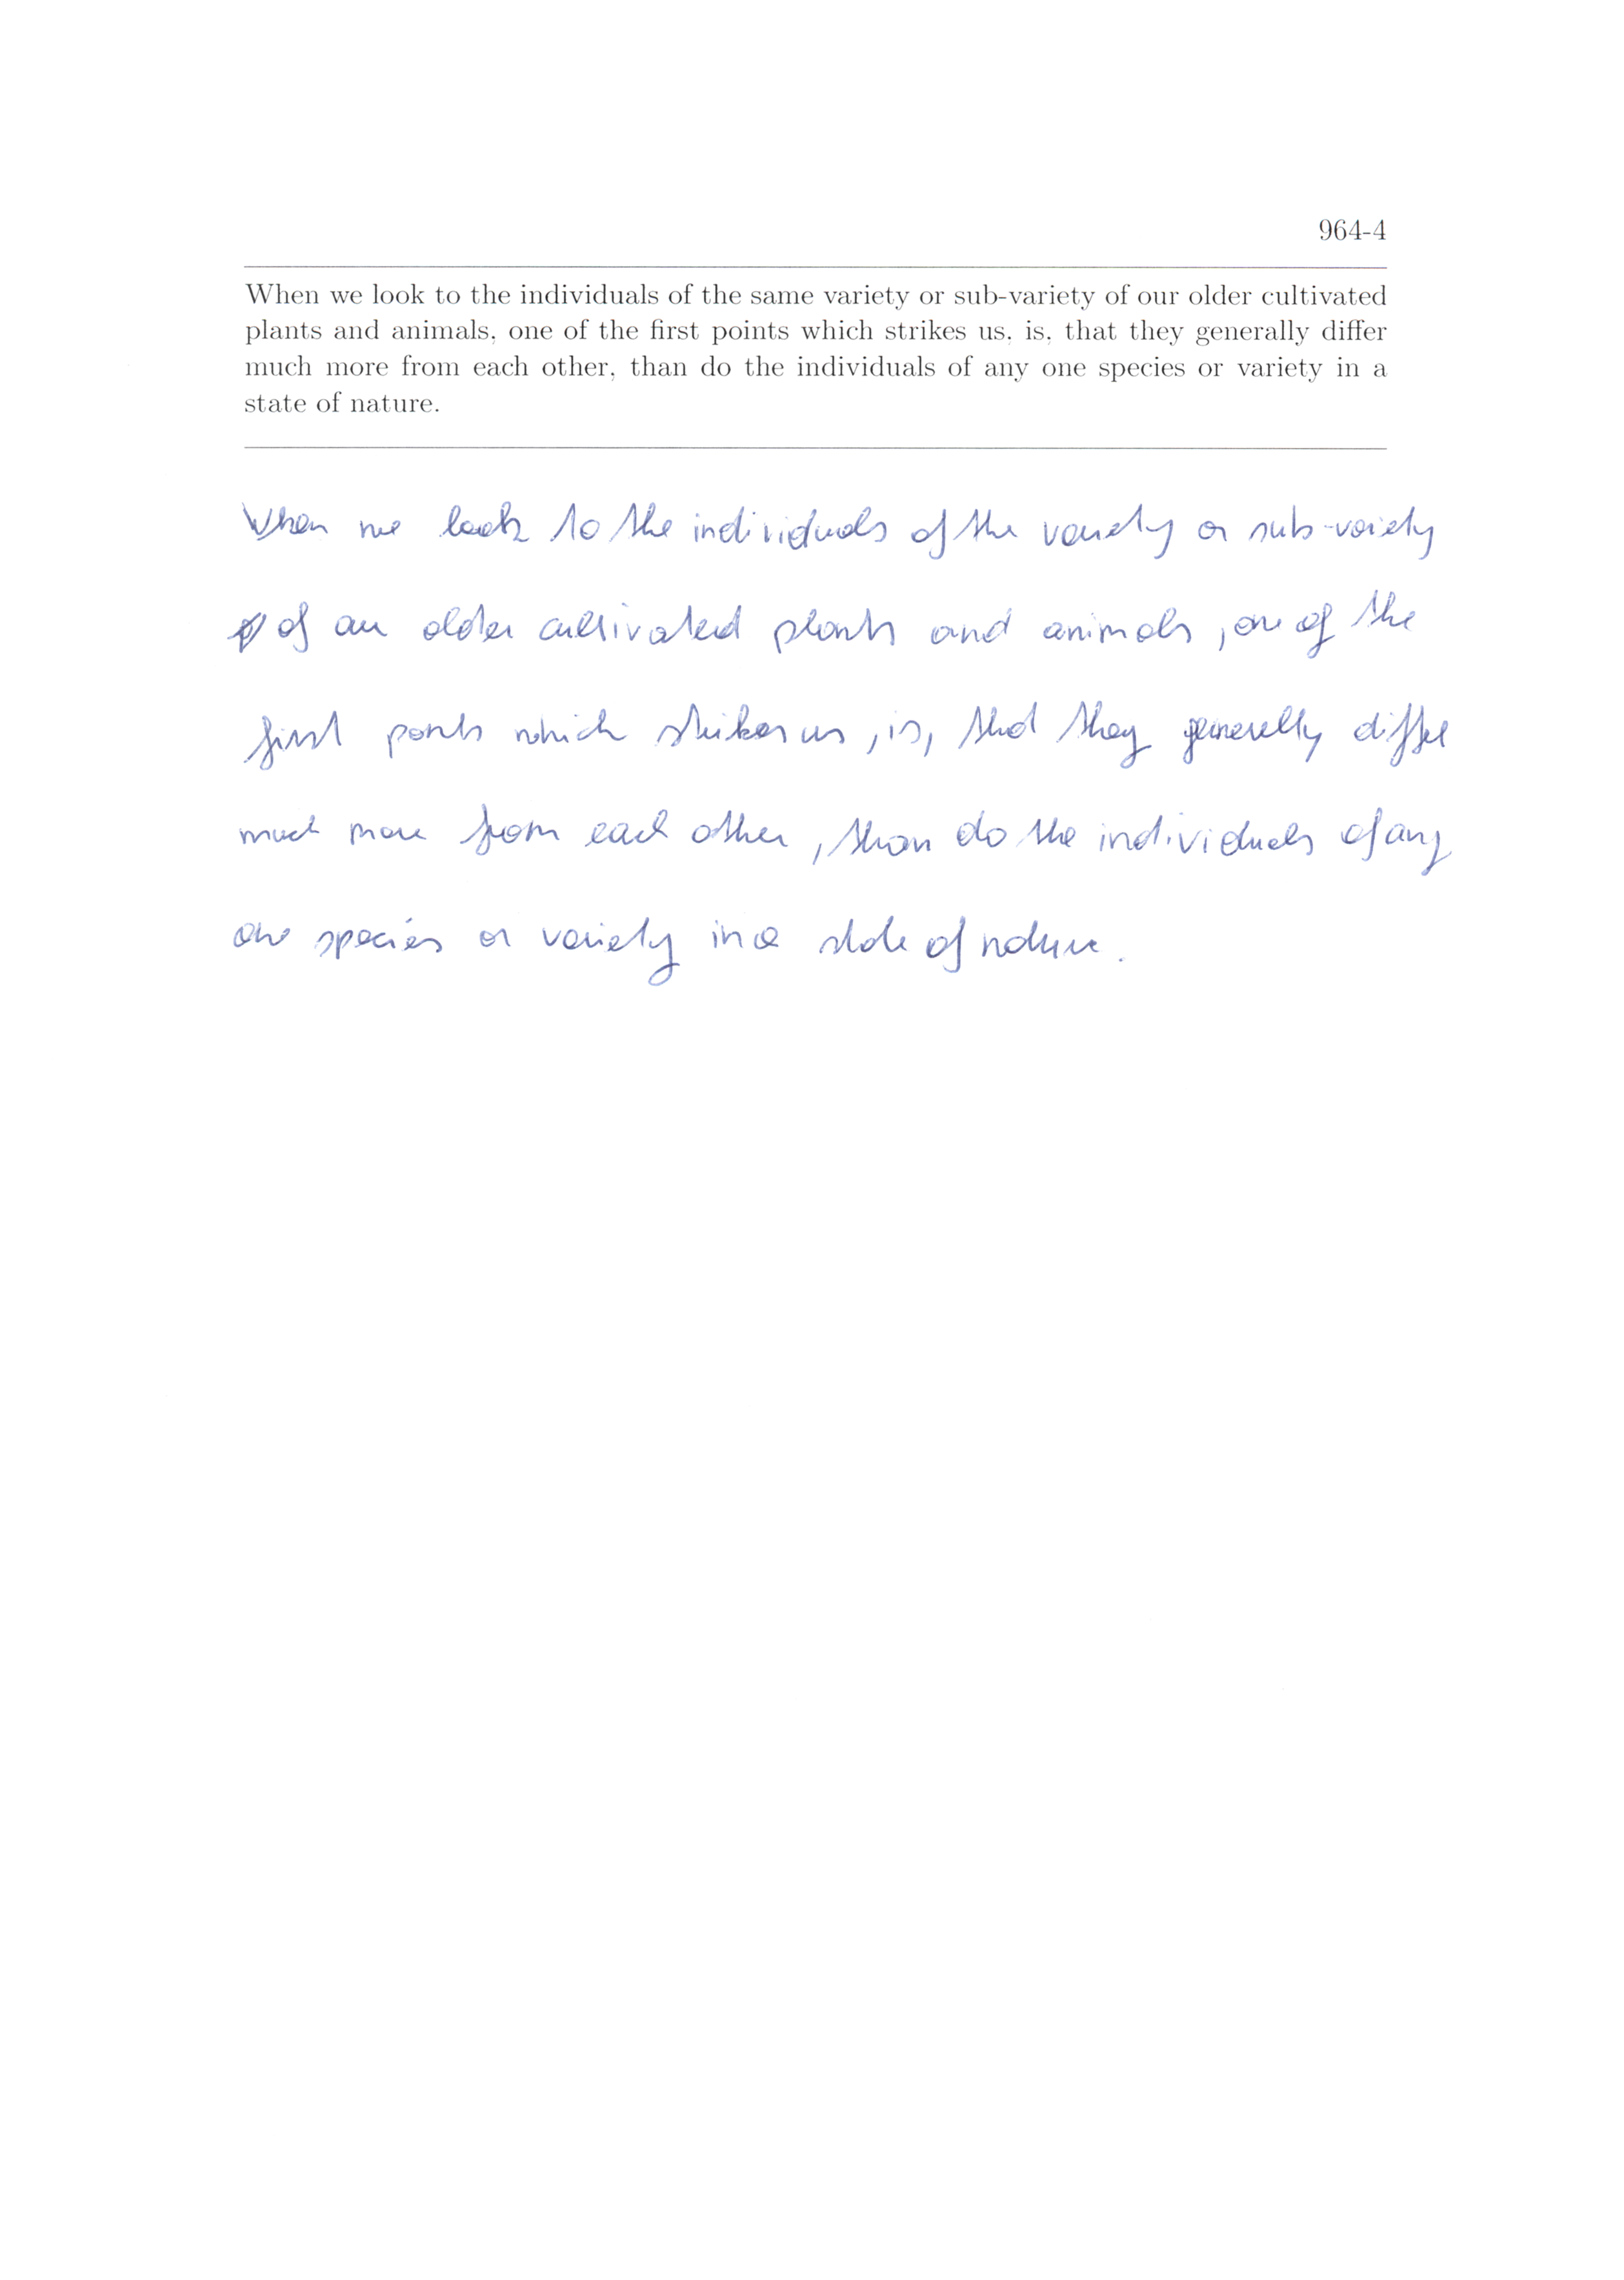 964-4
When we look to the individuals of the same variety or sub-variety of our older cultivated
plants and animals, one of the first points which strikes us, is, that they generally differ
much more from each other, than do the individuals of any one species or variety in a
state of nature.
When we look to the individuals of the variety or sub-variety
of our older cultivated plants and animals, one of the
first points which strikes us, is, that they generally differ
much more from each other, than do the individuals of any
one species or variety in a state of nature.